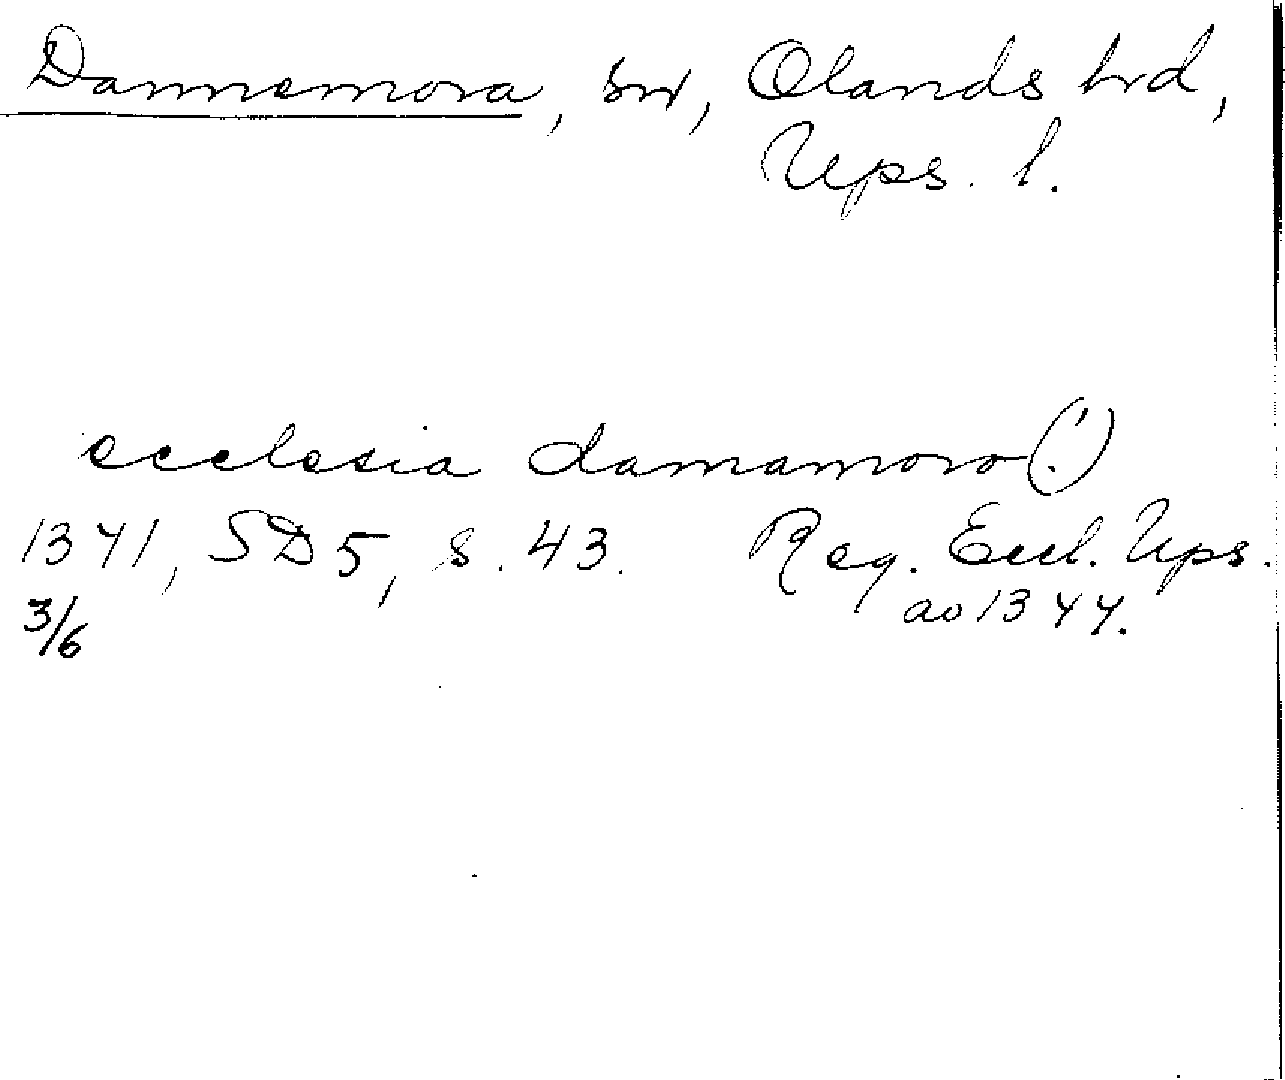 Dannemora, sn, Olands hd,
Ups. l.
ecclesia damamoro(!)
1341, SD5, s. 43. Reg. Eccl. Ups.
3/6 ao 1344.